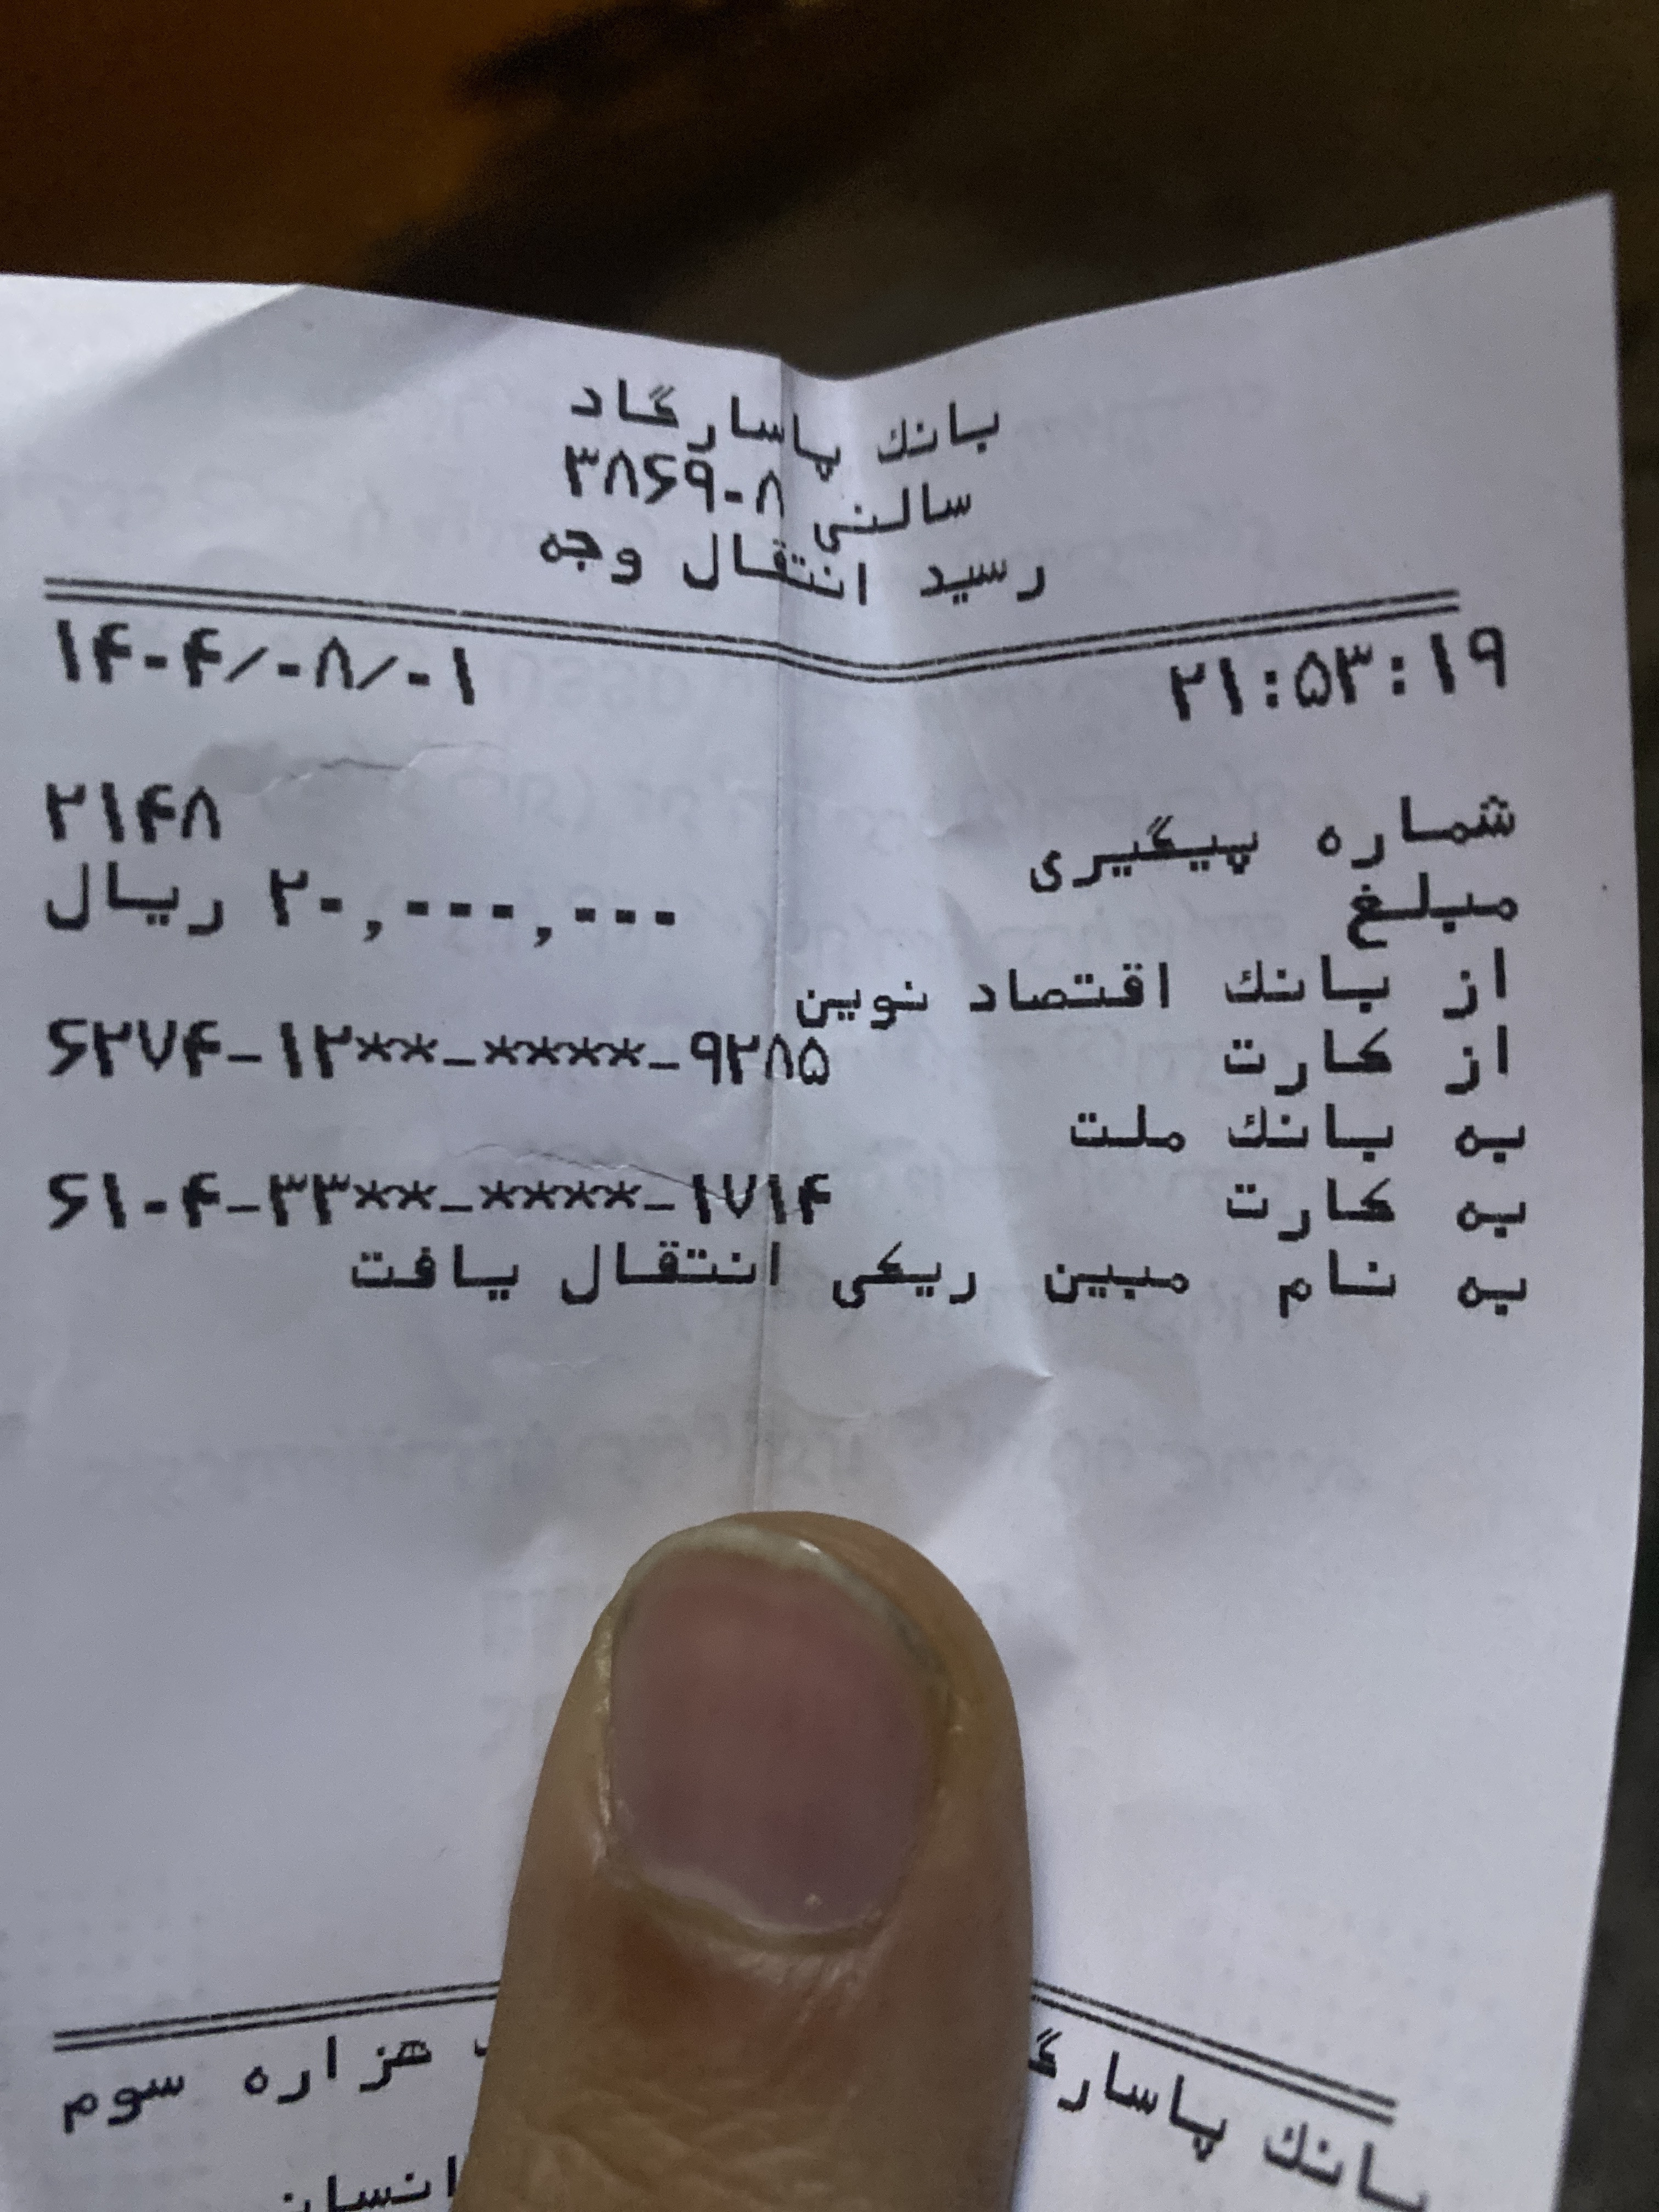 بانك پاسارگاد
سالنی ۳۸۶۹۰۸
رسید انتقال وجه
۲۱:۵۳:۱۹ ۱۴۰۴/۰۸/۰۱
شماره پیگیری ۲۱۴۸
مبلغ ۲۰,۰۰۰,۰۰۰ ریال
از بانك اقتصاد نوین
از کارت ۶۲۷۴-۱۲**-****-۹۲۸۵
به بانك ملت
به کارت ۶۱۰۴-۳۳**-****-۱۷۱۴
به نام مبین ریکی انتقال یافت
بانك هزاره سوم
انسان